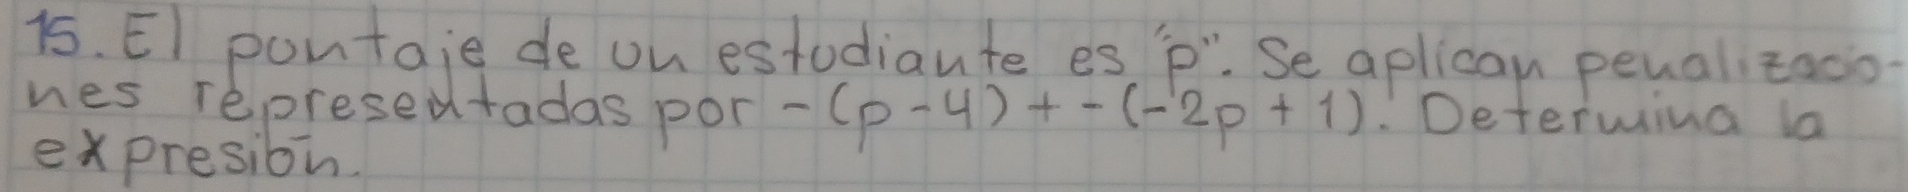 15. El pontaje de un estudiante es "p". Se aplican penalizacio-
nes representadas por -(p-4)+-(-2p+1). Determina la
expresión.